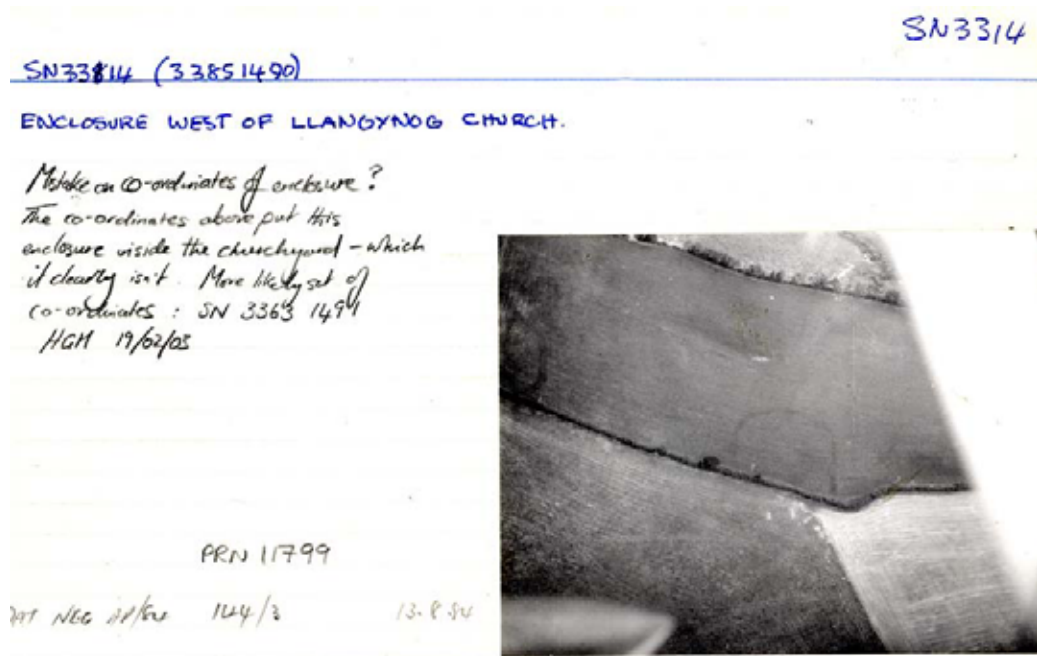 SN3314
SN33814 (33851490)
ENCLOSURE WEST OF LLANGYNOG CHURCH.
Mistake on co-ordinates of enclosure?
The co-ordinates above put this
enclosure inside the churchyard - which
it clearly isn't. More likely set of
co-ordinates : SN 3363 1491
HGM 19/02/03
PRN 11799
NEG 144/3 13.8.84